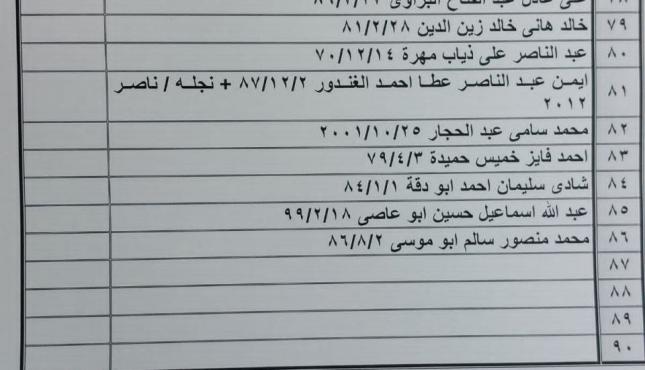 ٧٩ خالد هانى خالد زين الدين ٨١/٢/٢٨
٨٠ عبد الناصر على ذياب مهرة ٧٠/١٢/١٤
٨١ ايمن عبد الناصر عطا احمد الغندور ٨٧/١٢/٢ + نجله / ناصر
٢٠١٢
٨٢ محمد سامى عبد الحجار ٢٠٠١/١٠/٢٥
٨٣ احمد فايز خميس حميدة ٧٩/٤/٣
٨٤ شادى سليمان احمد ابو دقة ٨٤/١/١
٨٥ عبد الله اسماعيل حسين ابو عاصى ٩٩/٢/١٨
٨٦ محمد منصور سالم ابو موسى ٨٦/٨/٢
٨٧
٨٨
٨٩
٩٠